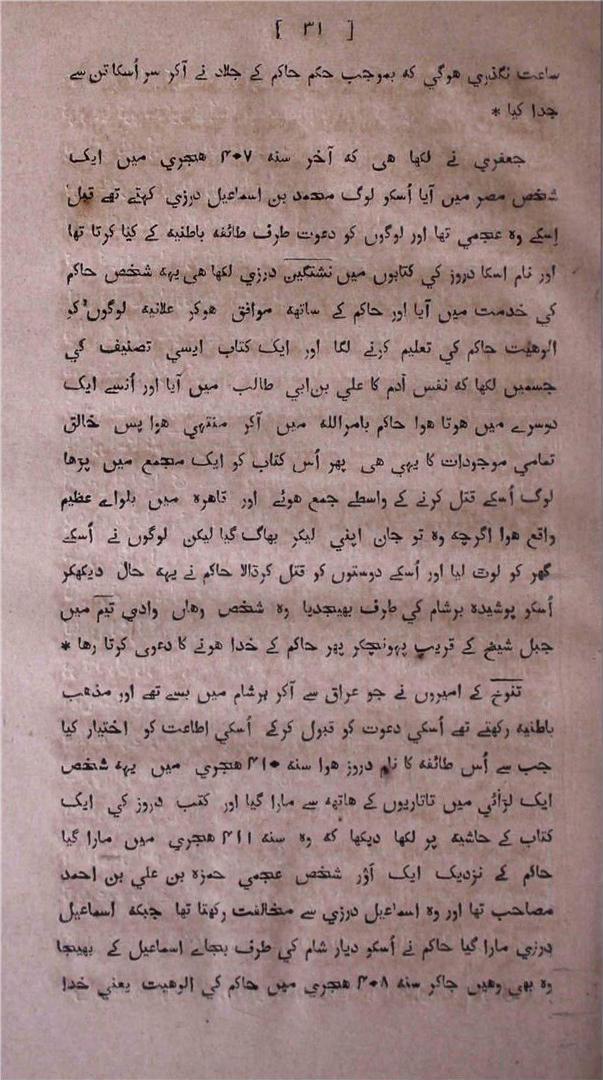 [ ۳۱ ]
ساعت نگذري هوگي که بموجب حکم حاکم کے جلاد نے آکر سر اُسکا تن سے
جدا کیا *
جعفري نے لکها هی که آخر سنه ۴۰۷ هجري میں ایک
شخص مصر میں آیا اُسکو لوگ محمد بن اسماعیل درزي کہتے تهے قبل
اِسکے وه عجمي تها اور لوگوں کو دعوت طرف طائفه باطنیه کے کیا کرتا تها
اور نام اسکا دروز کي کتابوں میں نشتگین درزي لکها هی یهه شخص حاکم
کي خدمت میں آیا اور حاکم کے ساتهه موافق هوکر علانیه لوگوں کو
الوهیت حاکم کي تعلیم کرنے لگا اور ایک کتاب ایسي تصنیف کي
جسمیں لکها که نفس آدم کا علي بن ابي طالب میں آیا اور اُنسے ایک
دوسرے میں هوتا هوا حاکم بامرالله میں آکر منتهي هوا پس خالق
تمامي موجودات کا یهي هی پهر اُس کتاب کو ایک مجمع میں پڑها
لوگ اُسکے قتل کرنے کے واسطے جمع هوئے اور قاهره میں بلواے عظیم
واقع هوا اگرچه وه تو جان اپني لیکر بهاگ گیا لیکن لوگوں نے اُسکے
گهر کو لوت لیا اور اُسکے دوستوں کو قتل کرڈالا حاکم نے یهه حال دیکهکر
اُسکو پوشیده برشام کي طرف بهیجدیا وه شخص وهاں وادي تیم میں
جبل شیخ کے قریب پہونچکر پهر حاکم کے خدا هونے کا دعوی کرتا رها *
تنوخ کے امیروں نے جو عراق سے آکر برشام میں بسے تهے اور مذهب
باطنیه رکهتے تهے اُسکي دعوت کو قبول کرکے اُسکي اطاعت کو اختیار کیا
جب سے اُس طائفه کا نام دروز هوا سنه ۴۱۰ هجري میں یهه شخص
ایک لڑائي میں تاتاریوں کے هاتهه سے مارا گیا اور کتب دروز کي ایک
کتاب کے حاشیه پر لکها دیکها که وه سنه ۴۱۱ هجري میں مارا گیا
حاکم کے نزدیک ایک اَوْر شخص عجمي حمزه بن علي بن احمد
مصاحب تها اور وه اسماعیل درزي سے مخالفت رکهتا تها جبکه اسماعیل
درزي مارا گیا حاکم نے اُسکو دیار شام کي طرف بجاے اسماعیل کے بهیجا
وه بهي وهیں جاکر سنه ۴۰۸ هجري میں حاکم کي الوهیت یعني خدا